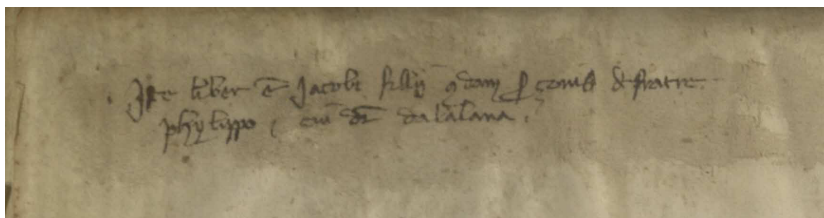 Iste liber ē Jacobi filij qdam ẜ çouis de fratre
phylippo, cui dr̄ dalalana.